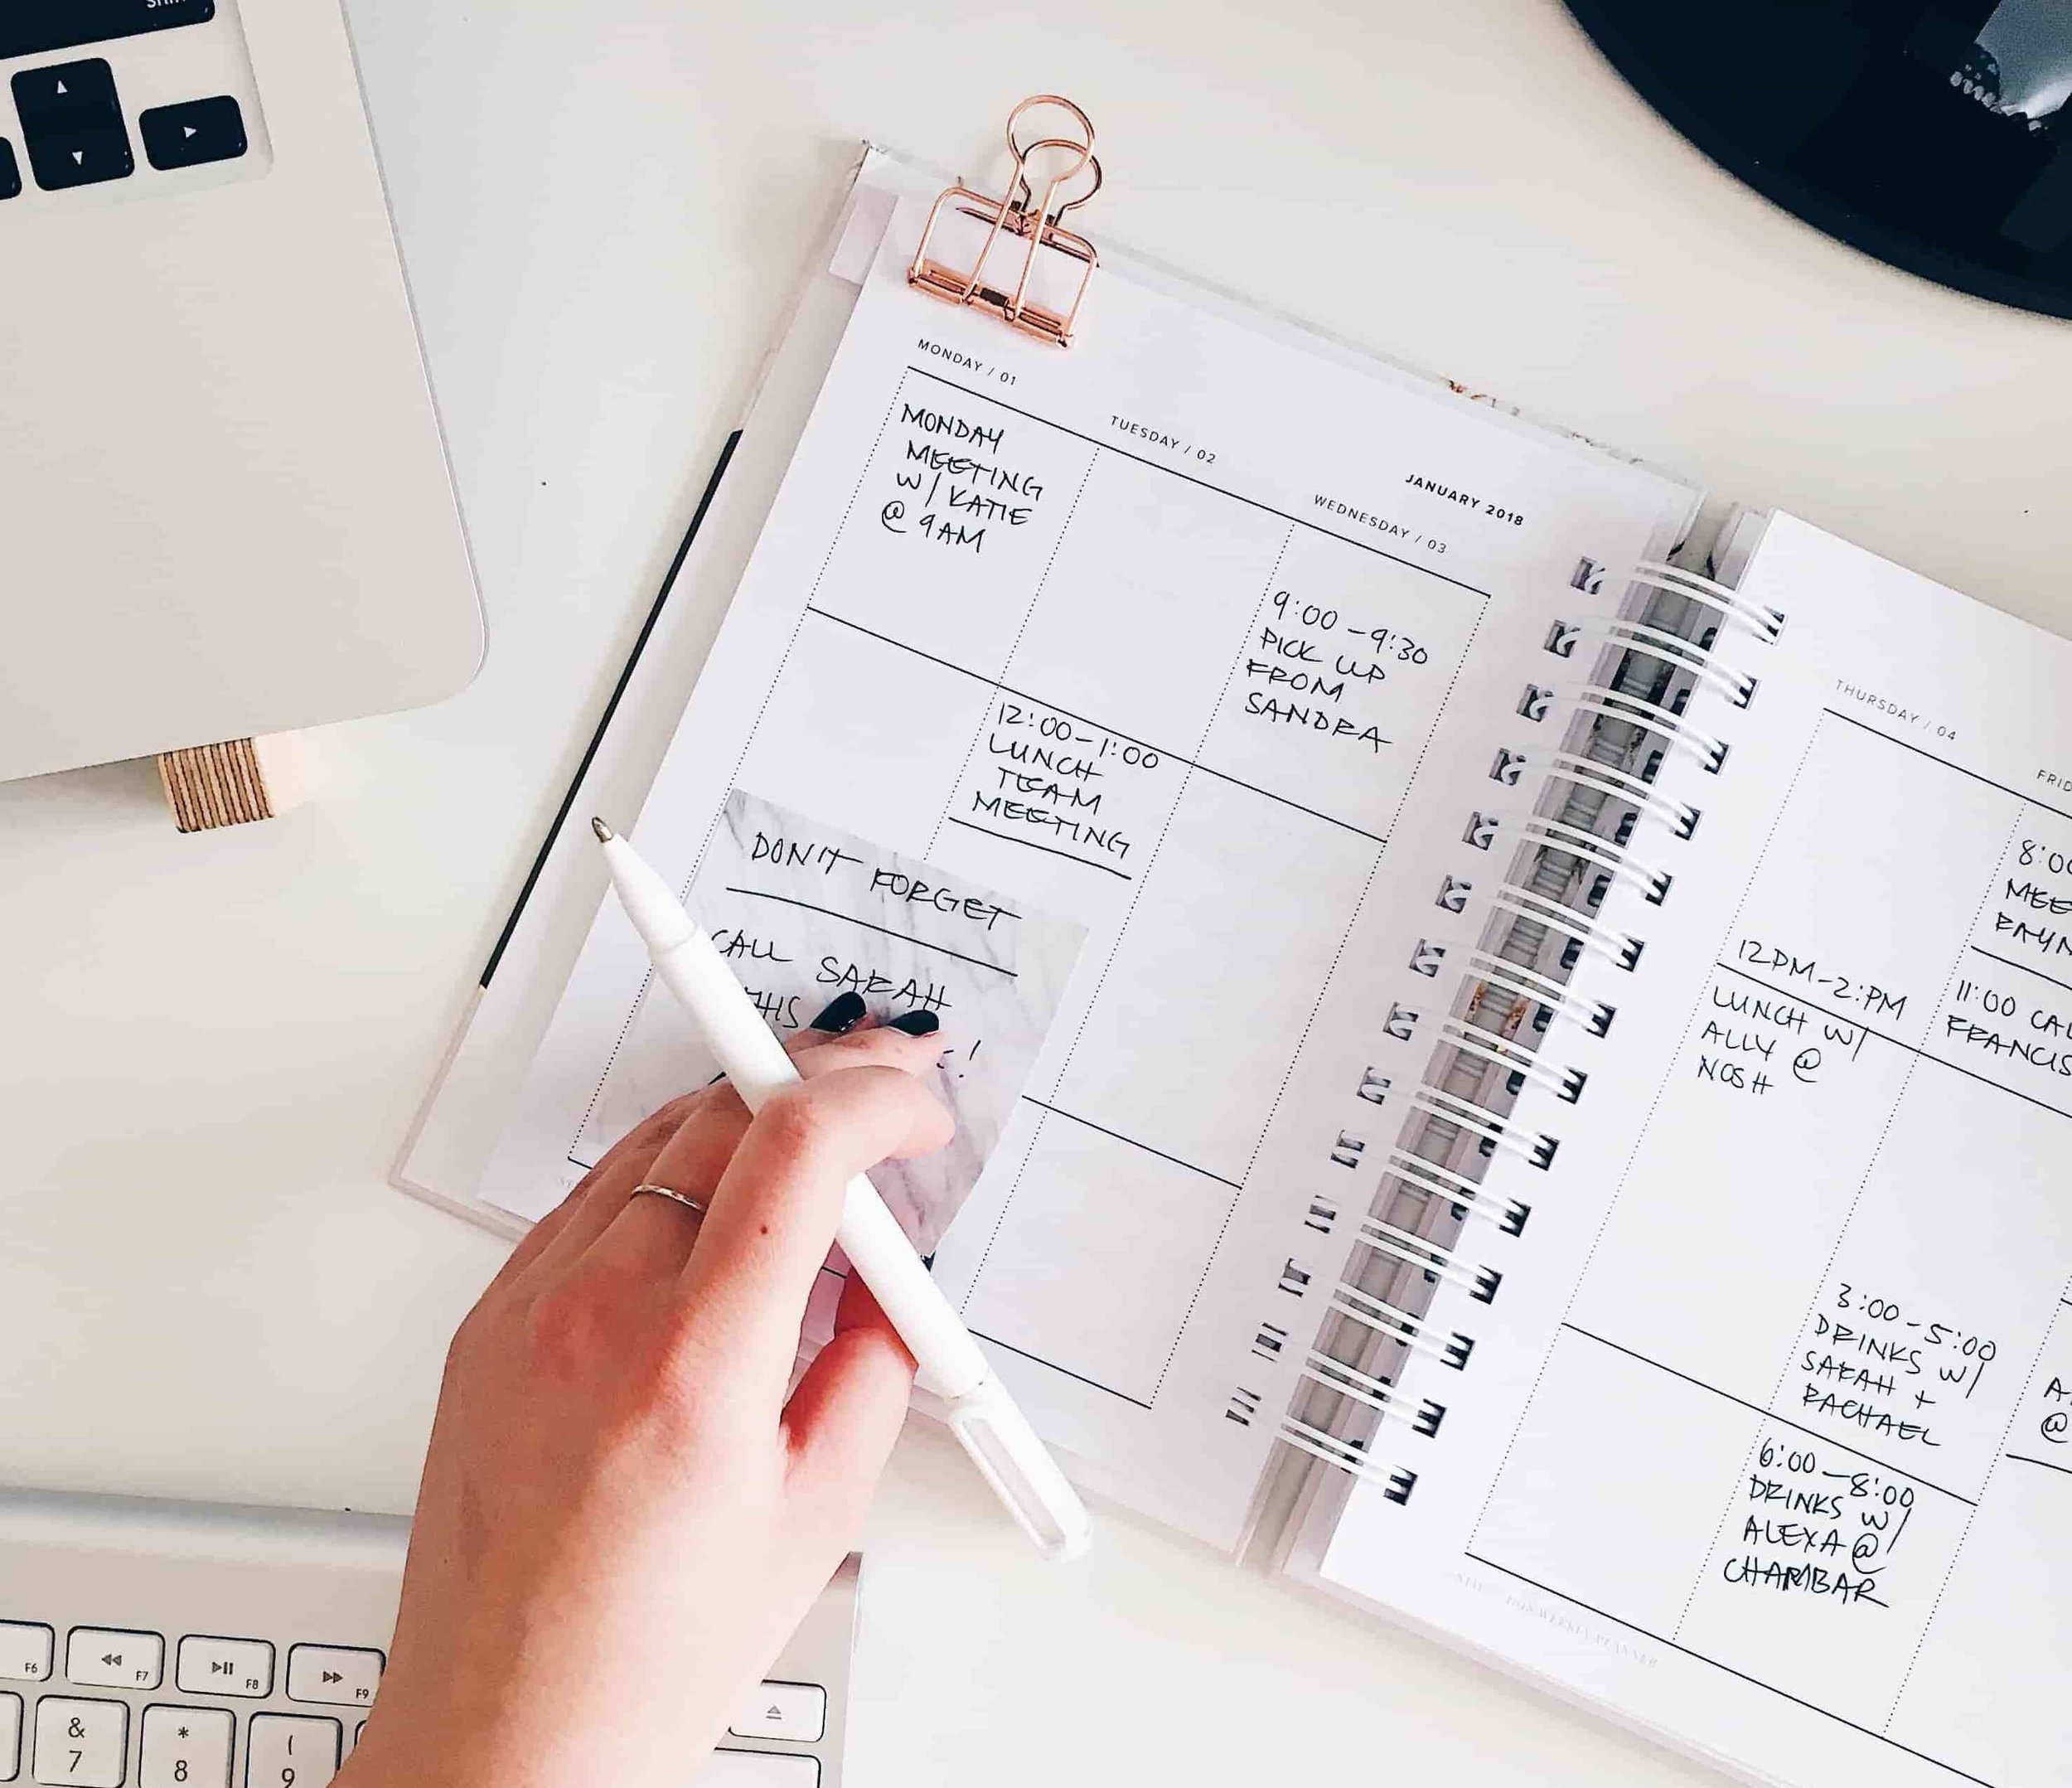 MONDAY / 01
MONDAY
MEETING
W/ KATIE
@ 9AM
TUESDAY / 02
12:00-1:00
LUNCH
TEAM
MEETING
JANUARY 2018
WEDNESDAY / 03
9:00-9:30
PICK UP
FROM
SANDRA
DON'T FORGET
CALL SARAH
THIS
!
THURSDAY / 04
12PM-2:PM
LUNCH W/
ALLY @
NOSH
FRID
8:00
MEE
11:00 CAL
FRANCIS
3:00-5:00
DRINKS W/
SARAH +
RACHAEL
6:00-8:00
DRINKS W/
ALEXA @
CHAMBAR
A
@
F6
F7
F8
F9
&
7
*
8
(
9